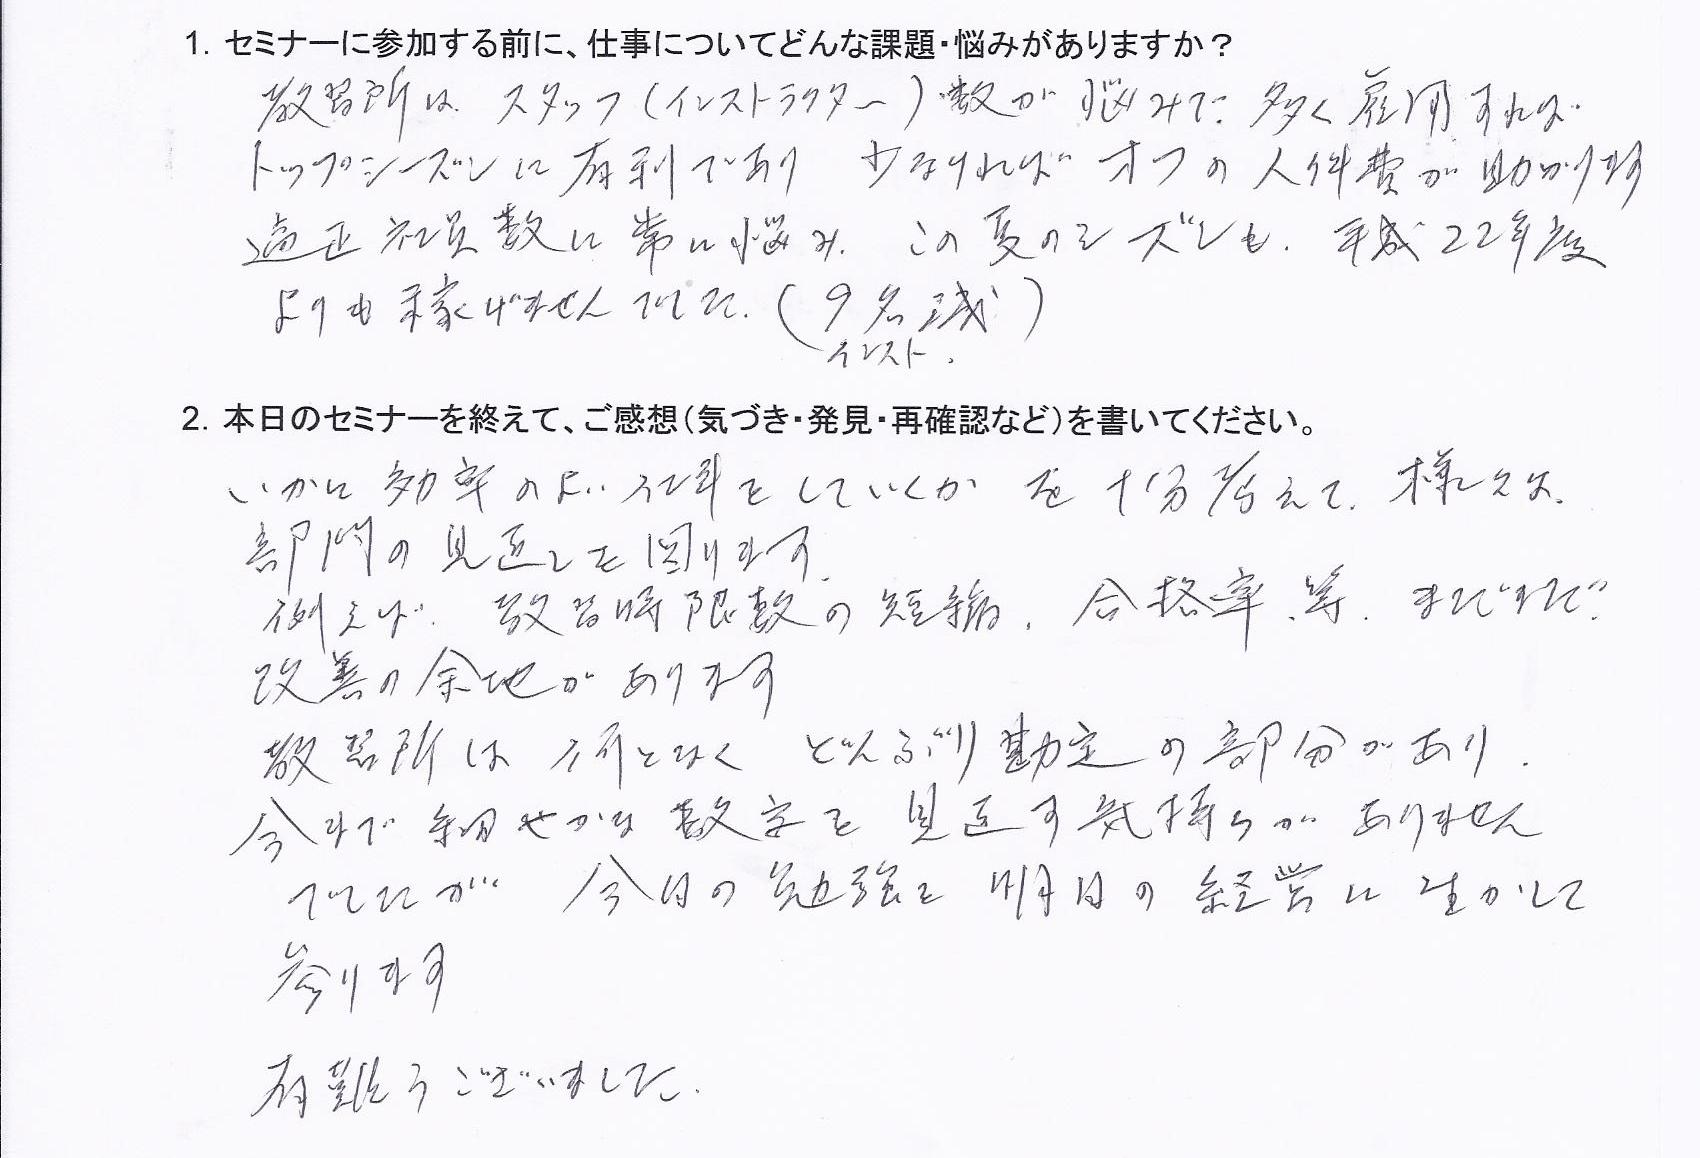 1. セミナーに参加する前に、仕事についてどんな課題・悩みがありますか？
教習所は スタッフ(インストラクター)数が悩みで 多く雇用すれば
トップシーズンに有利であり 少なければ オフの人件費が助かります
適正社員数に常に悩み、この夏のシーズンも、平成22年度
よりも稼げませんでした。(9名減)
インスト.
2. 本日のセミナーを終えて、ご感想(気づき・発見・再確認など)を書いてください。
いかに効率のよい仕事をしていくか を十分考えて、
部門の見直しを図ります.
例えば、教習時限数の短縮、合格率、等、まだまだ
改善の余地があります
教習所は何となく どんぶり勘定の部分があり、
今まで細やかな数字を見直す気持ちがありません
でしたが 今日の勉強を 明日の経営に生かして
参ります
有難うございました.